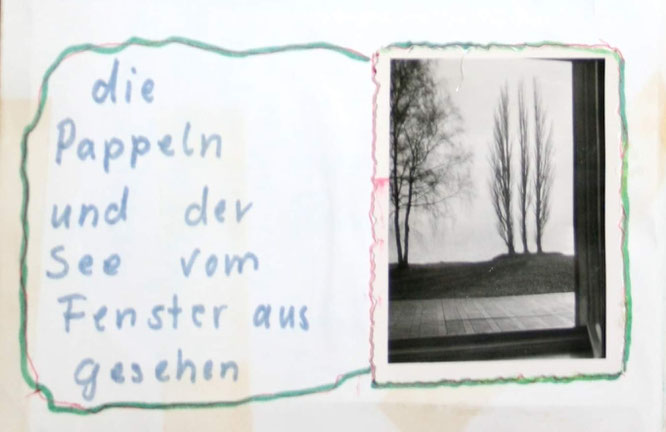 die
Pappeln
und der
See vom
Fenster aus
gesehen